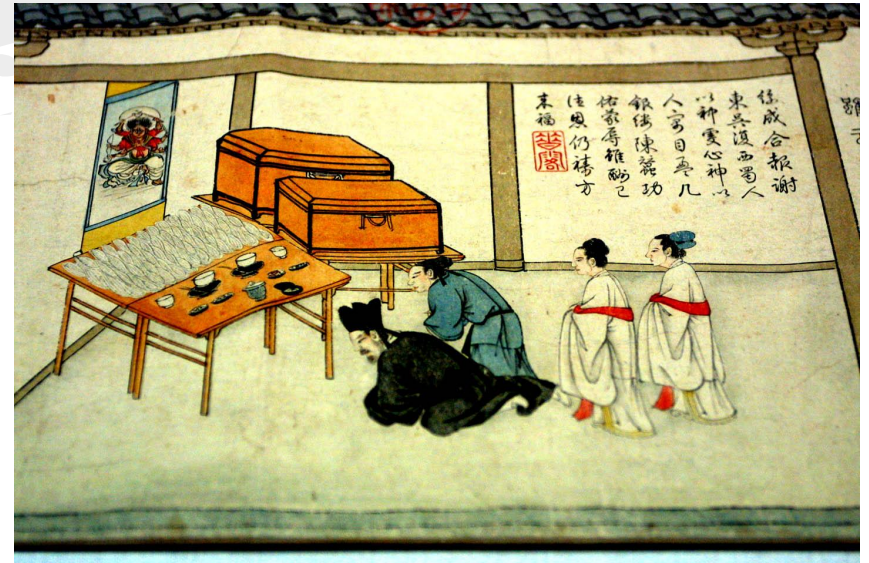 絲成合報謝
東吳復西蜀人
以神靈心神以
人寓目盈几
銀縷陳蠶功
佑蒙辱雖酬已
往恩仍禱方
來福